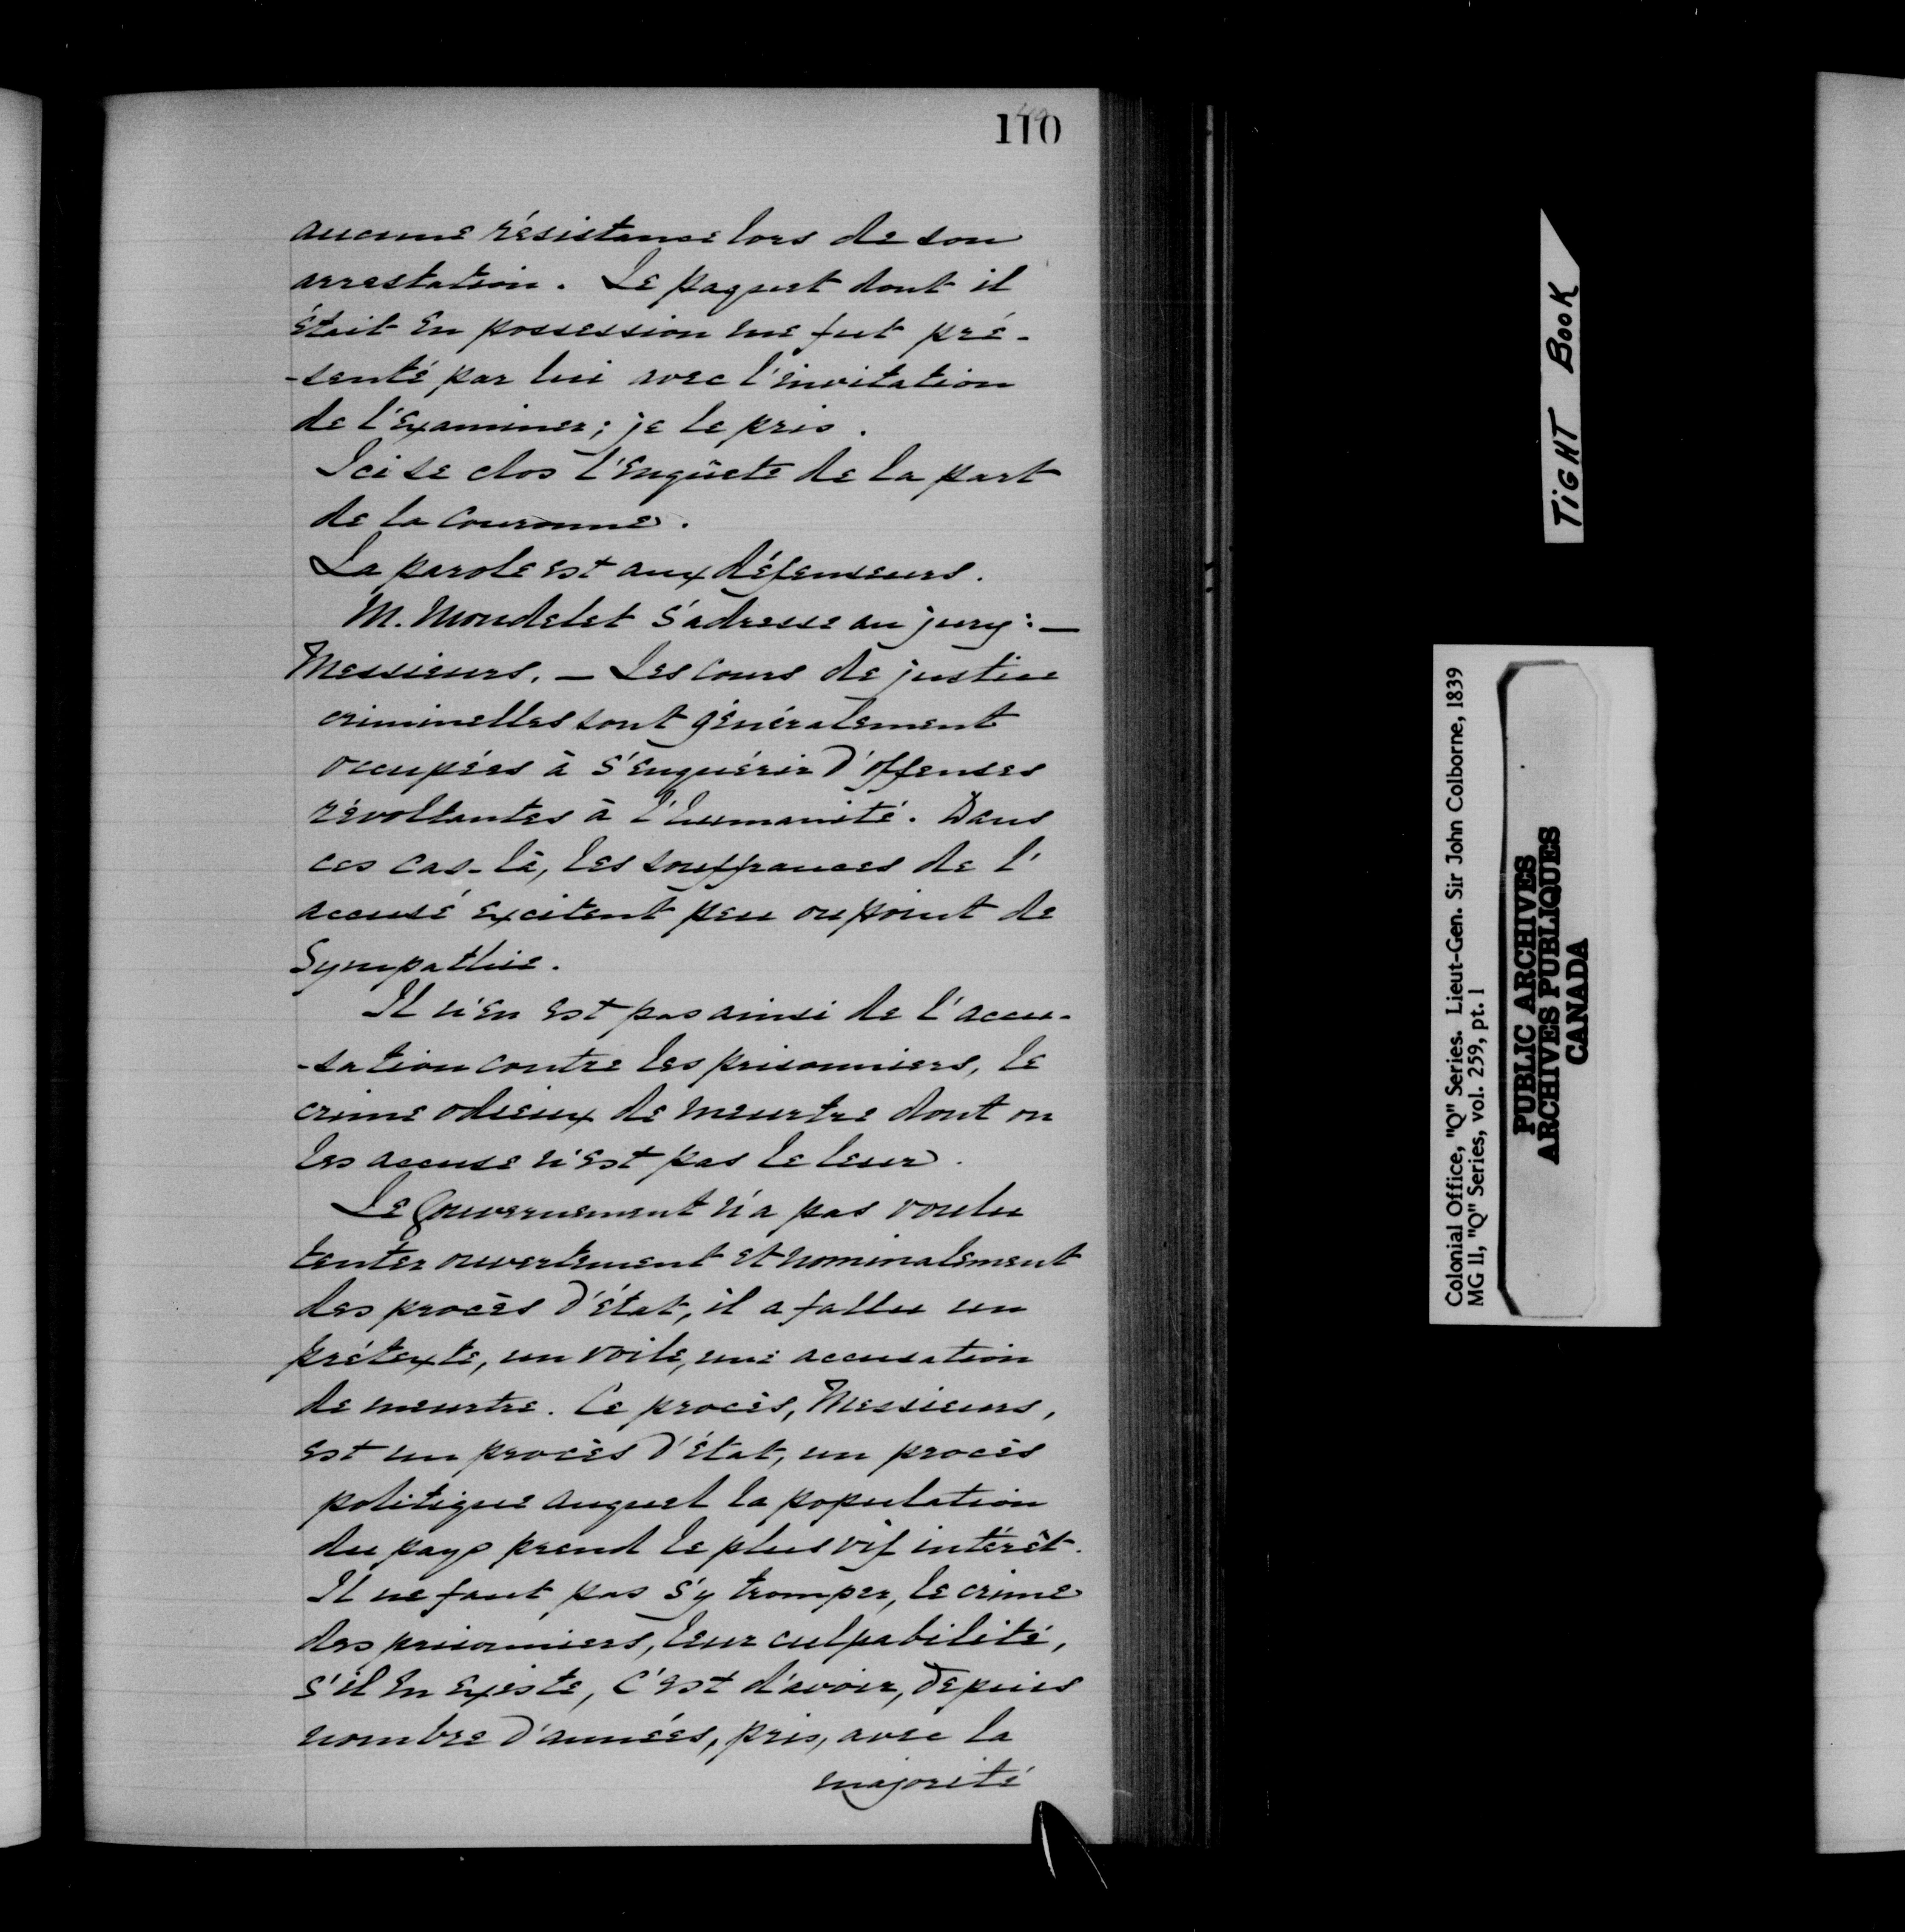 110
aucune résistance lors de son
arrestation. Le paquet dont il
était en possession me fut pré-
-senté par lui avec l'invitation
de l'examiner; je le pris.
Ici se clos l'enquête de la part
de la Couronne.
La parole est aux défenseurs.
M. Mondelet s'adresse au jury:—
Messieurs. — Les Cours de justice
criminelles sont généralement
occupées à s'enquérir d'offenses
révoltantes à l'humanité. Dans
ces cas-là, les souffrances de l'
accusé excitent peu ou point de
Sympathie.
Il n'en est pas ainsi de l'accu-
-sation contre les prisonniers, le
crime odieux de meurtre dont on
les accuse n'est pas le leur.
Le Gouvernement n'a pas voulu
tenter ouvertement et nominalement
des procès d'état, il a fallu un
prétexte, un voile, une accusation
de meurtre. Ce procès, Messieurs,
est un procès d'état, un procès
politique auquel la population
du pays prend le plus vif intérêt.
Il ne faut pas s'y tromper, le crime
des prisonniers, leur culpabilité,
s'il en existe, c'est d'avoir, depuis
nombre d'années, pris, avec la
majorité
TIGHT BOOK
Colonial Office, "Q" Series. Lieut-Gen. Sir John Colborne, 1839
MG 11, "Q" Series, vol. 259, pt. 1
PUBLIC ARCHIVES
ARCHIVES PUBLIQUES
CANADA